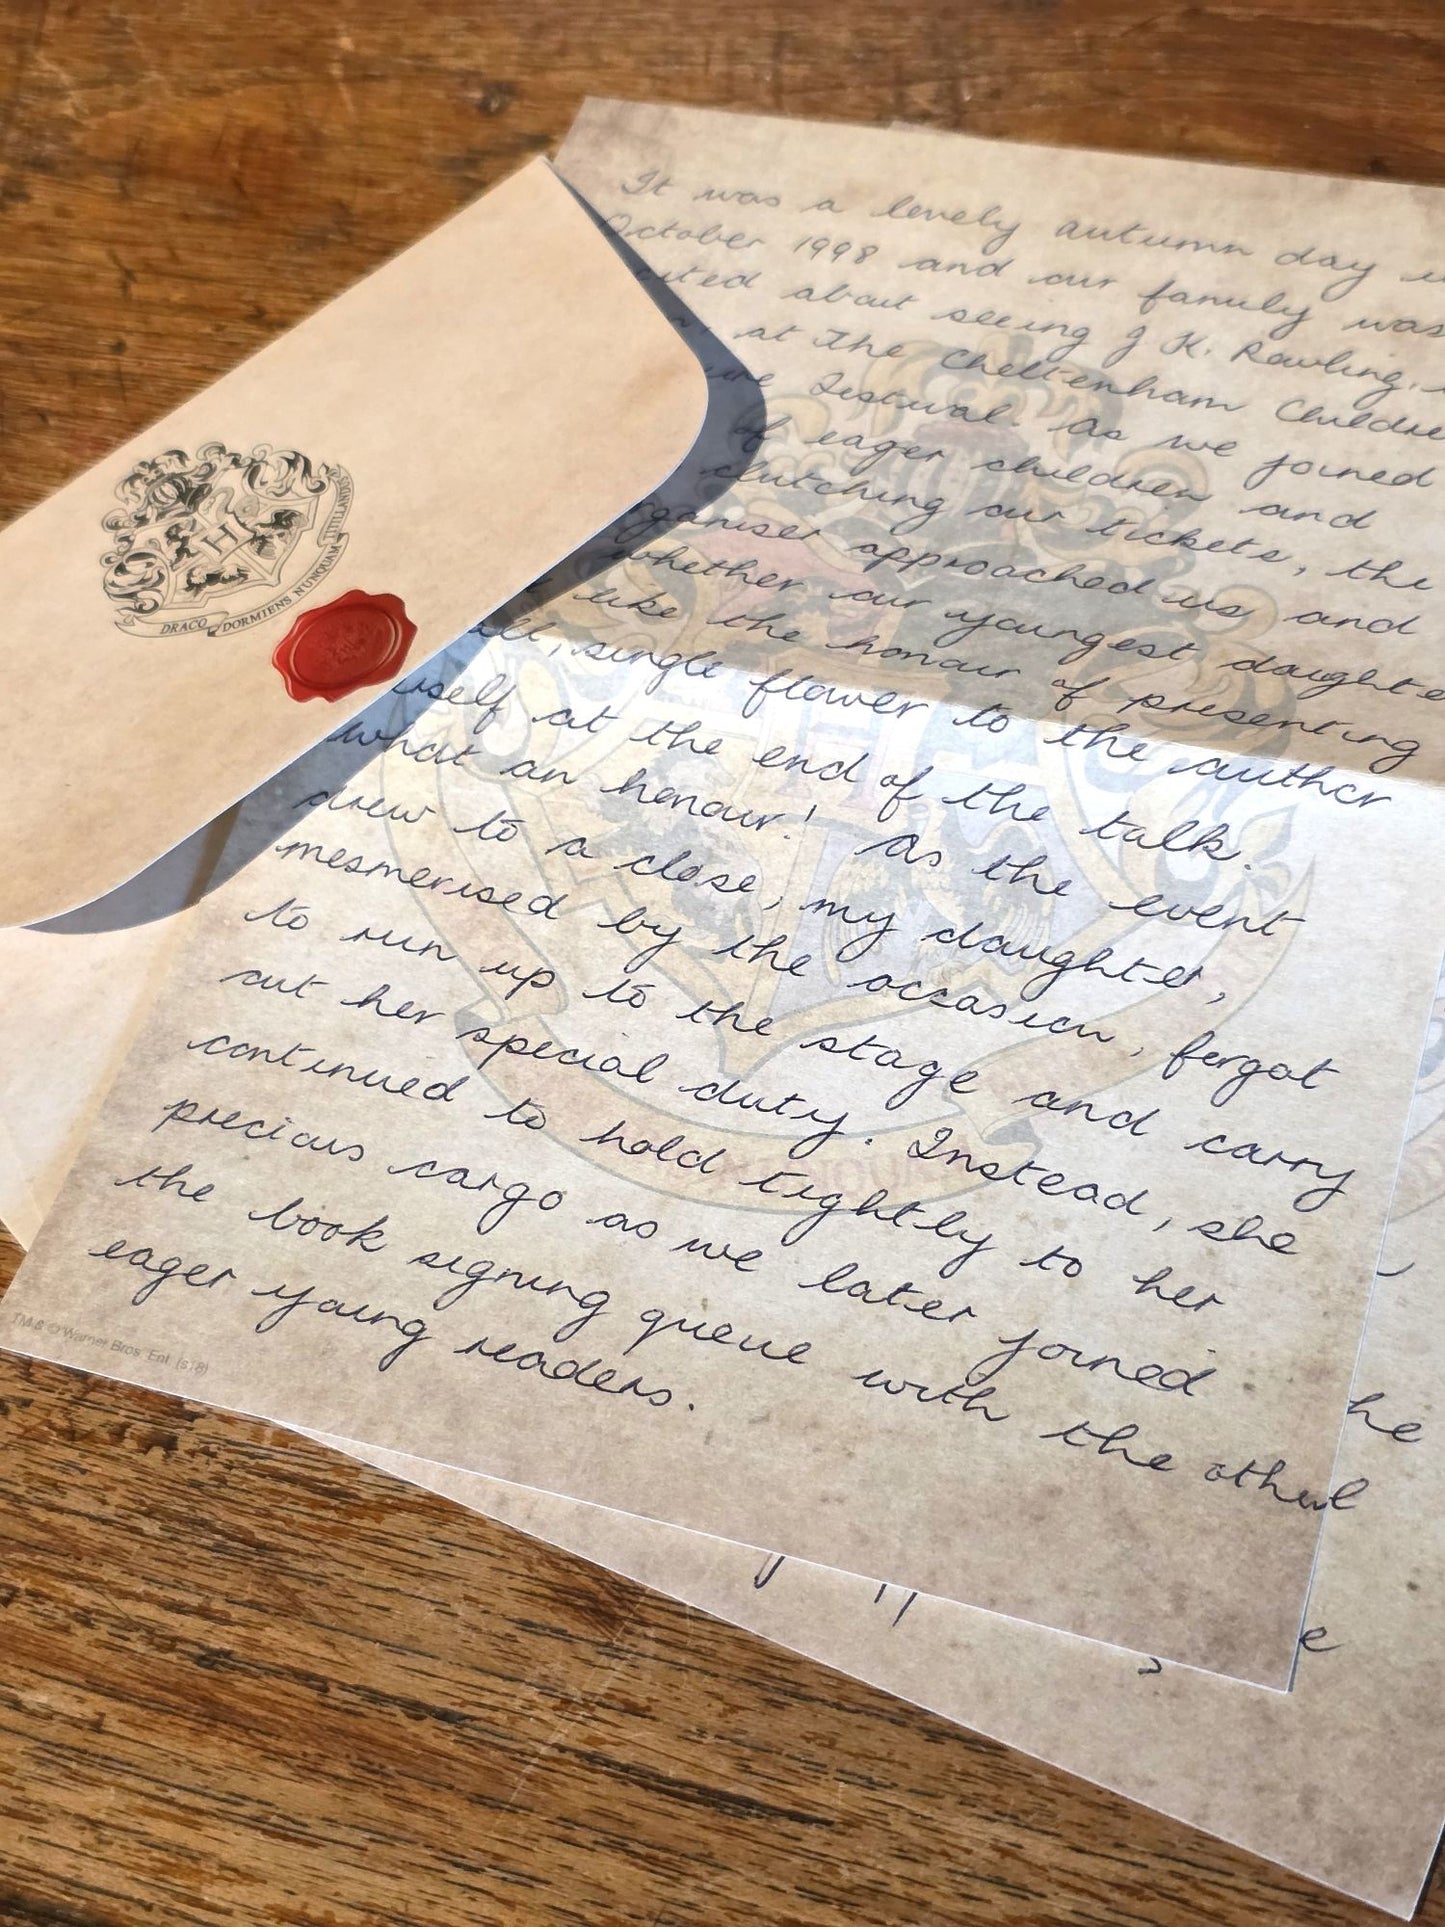 DRACO DORMIENS NUNQUAM TITILLANDUS
H
It was a lovely autumn day
October 1998 and our family was
about seeing J K. Rowling.
at The Cheltenham
Festival. As we joined
of eager children and
clutching our tickets, the
approached us and
whether our youngest
like the honour of presenting
single flower to the author
at the end of the talk.
what an honour! As the event
drew to a close, my daughter,
mesmerised by the occasion, forgot
to run up to the stage and carry
out her special duty. Instead, she
continued to hold tightly to her
precious cargo as we later joined
the book signing queue with the other
eager young readers.
TM & © Warner Bros. Ent. (s18)
he
e